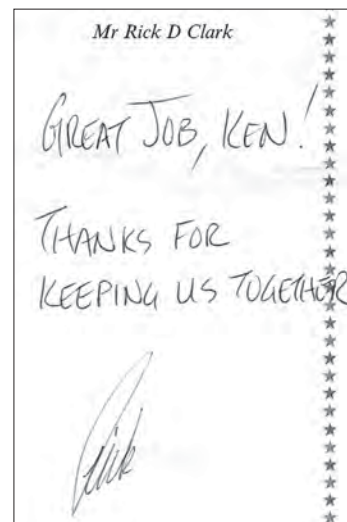 Mr Rick D Clark
GREAT JOB, KEN!
THANKS FOR
KEEPING US TOGETHER
Rick